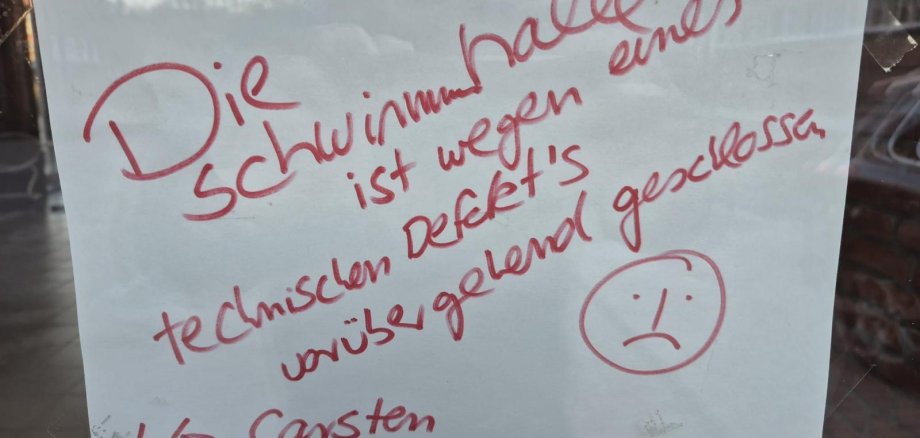 Die
schwimmhalle
ist wegen eines
technischen Defekt's
vorübergehend geschlossen
Carsten